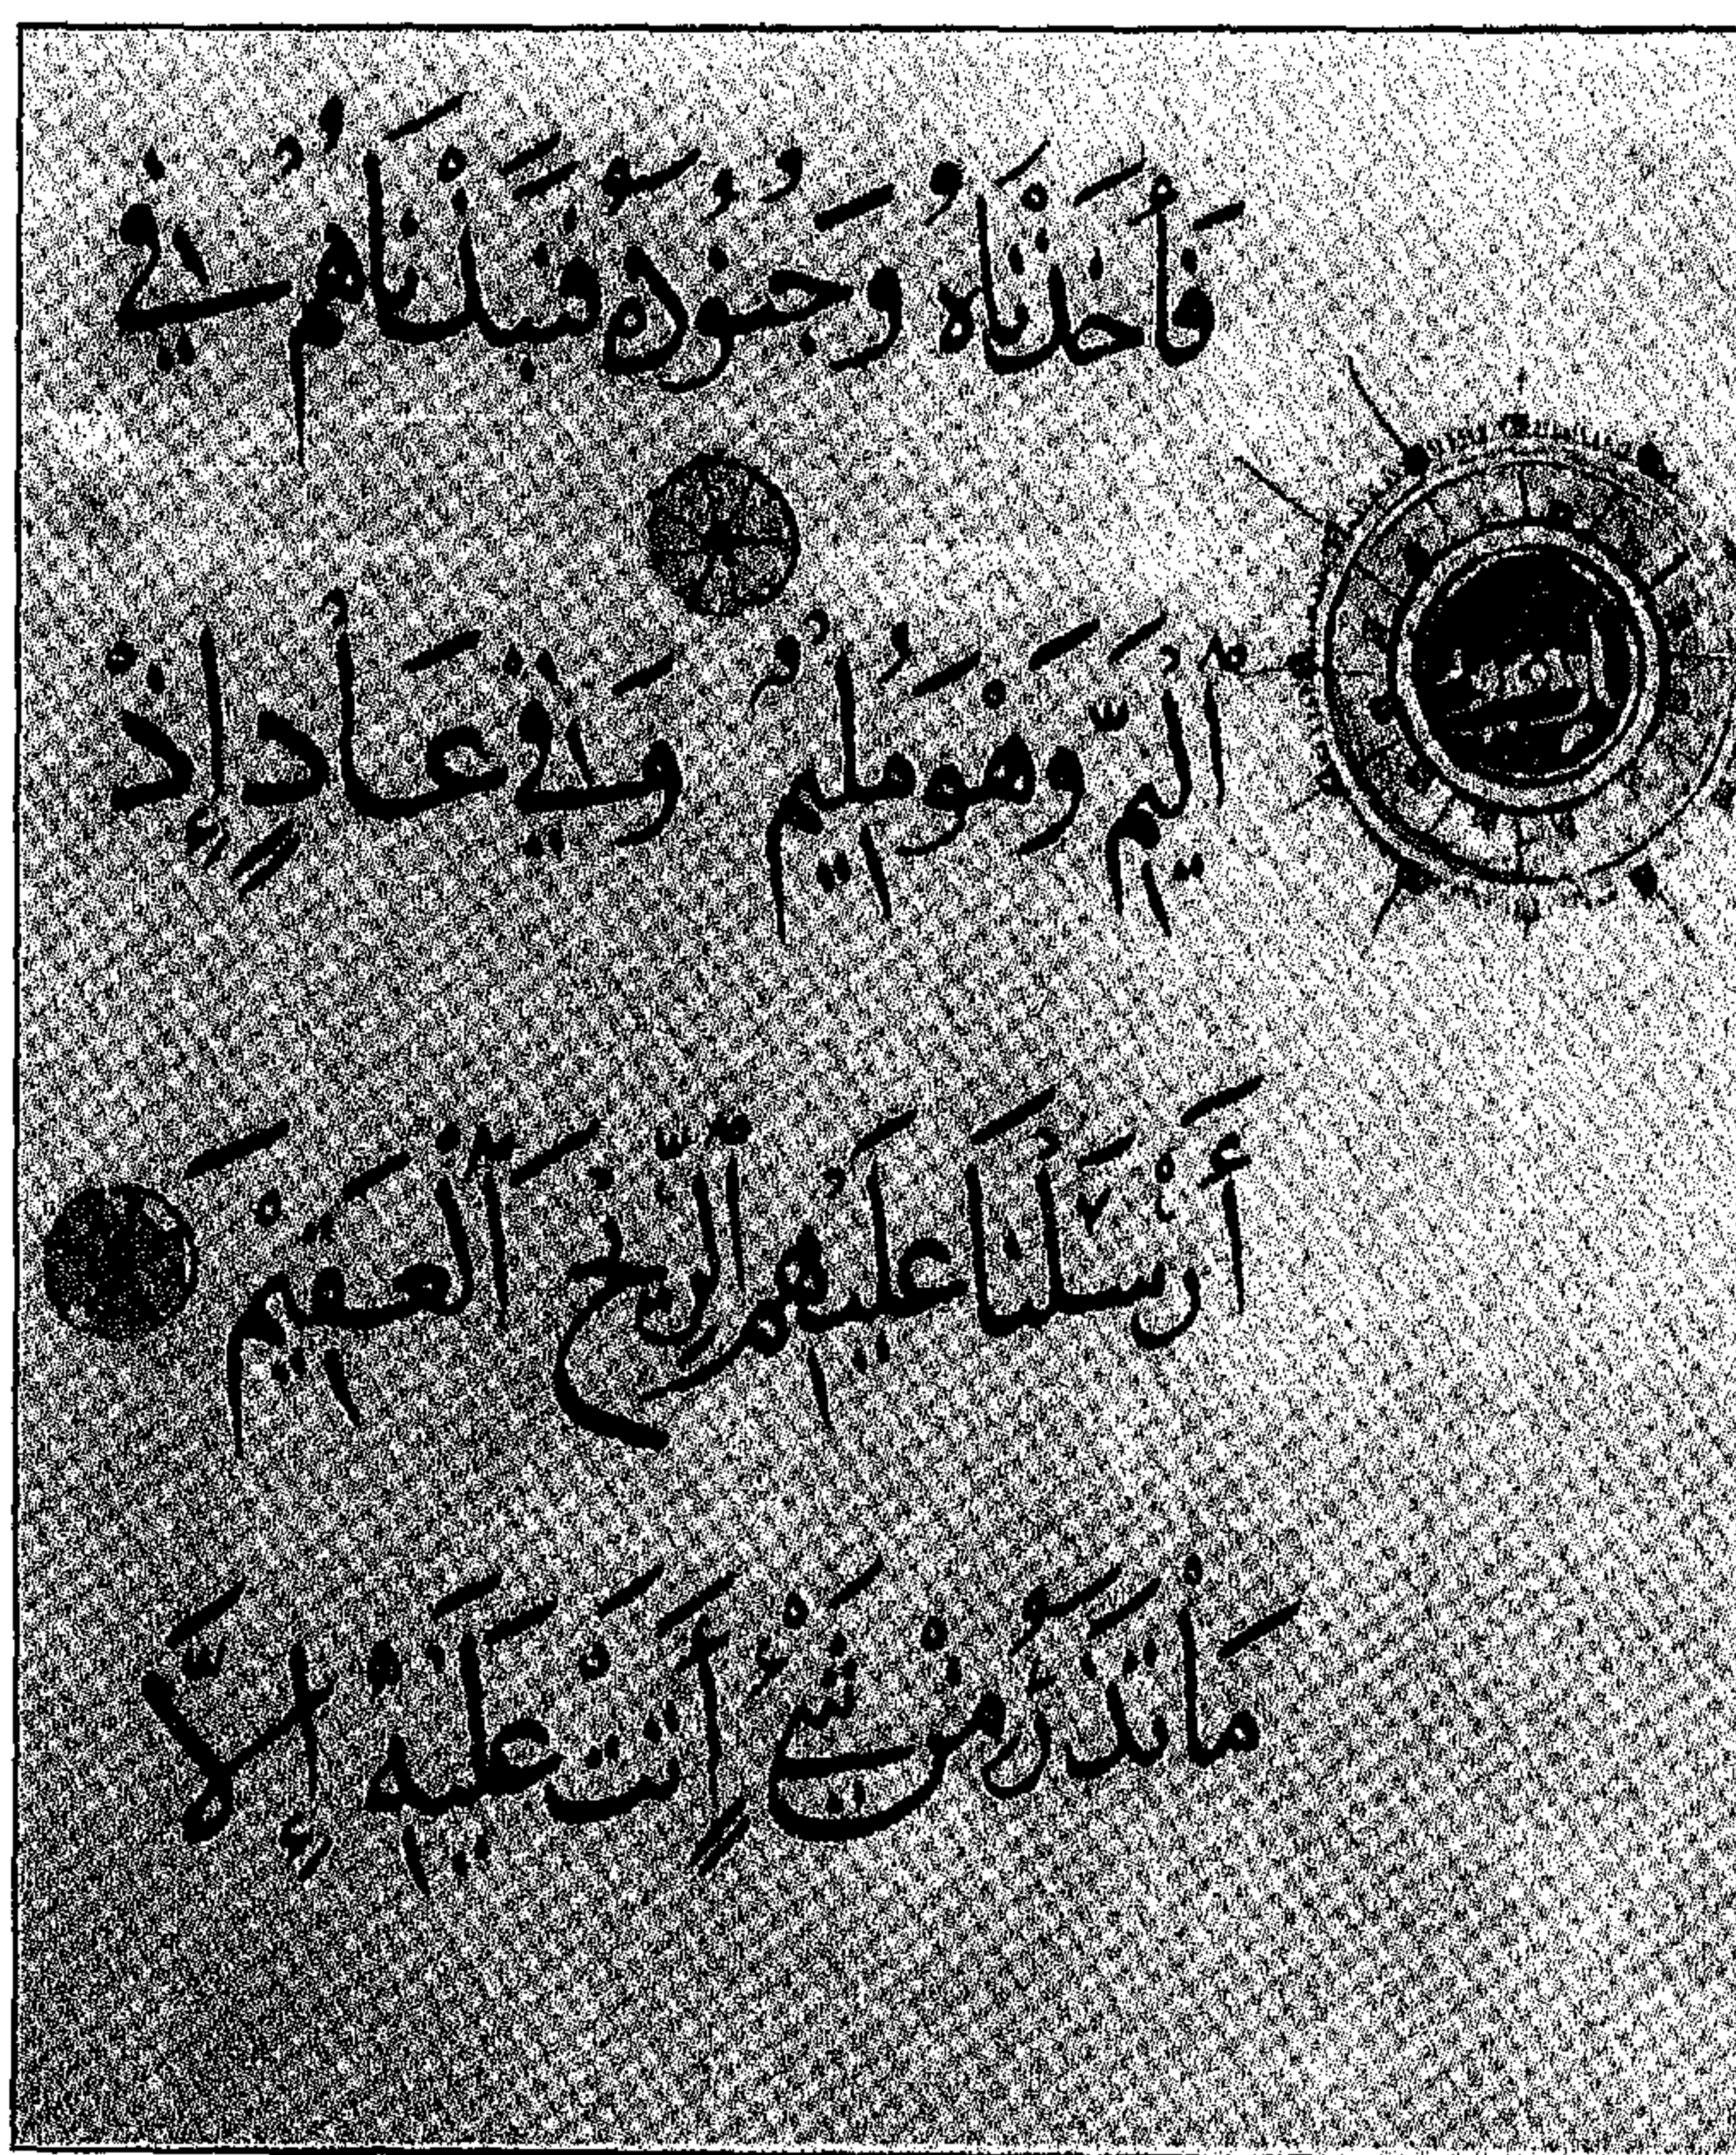 فَأَخَذْنَاهُ وَجُنُودَهُ فَنَبَذْنَاهُمْ فِي
الْيَمِّ وَهُوَ مُلِيمٌ وَفِي عَادٍ إِذْ
أَرْسَلْنَا عَلَيْهِمُ الرِّيحَ الْعَقِيمَ
مَا تَذَرُ مِنْ شَيْءٍ أَتَتْ عَلَيْهِ إِلَّا